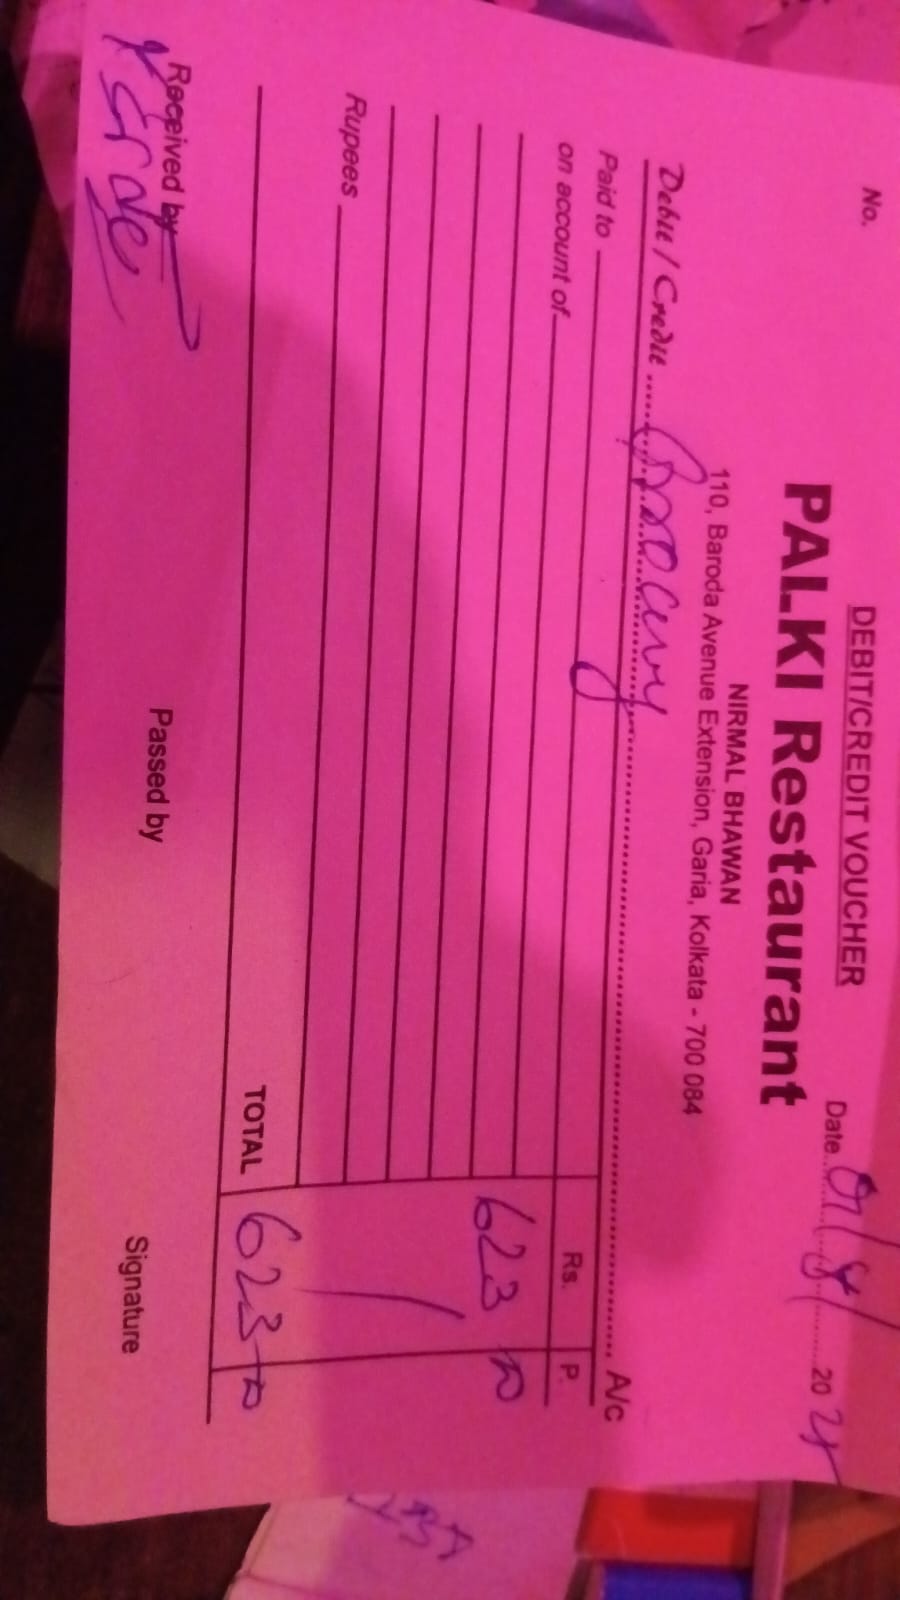 DEBIT/CREDIT VOUCHER
No. Date 20 24
PALKI Restaurant
NIRMAL BHAWAN
110, Baroda Avenue Extension, Garia, Kolkata - 700 084
Debit / Credit Grocery A/c
Paid to Rs. P.
on account of
623
Rupees
TOTAL 623
Received by Passed by Signature